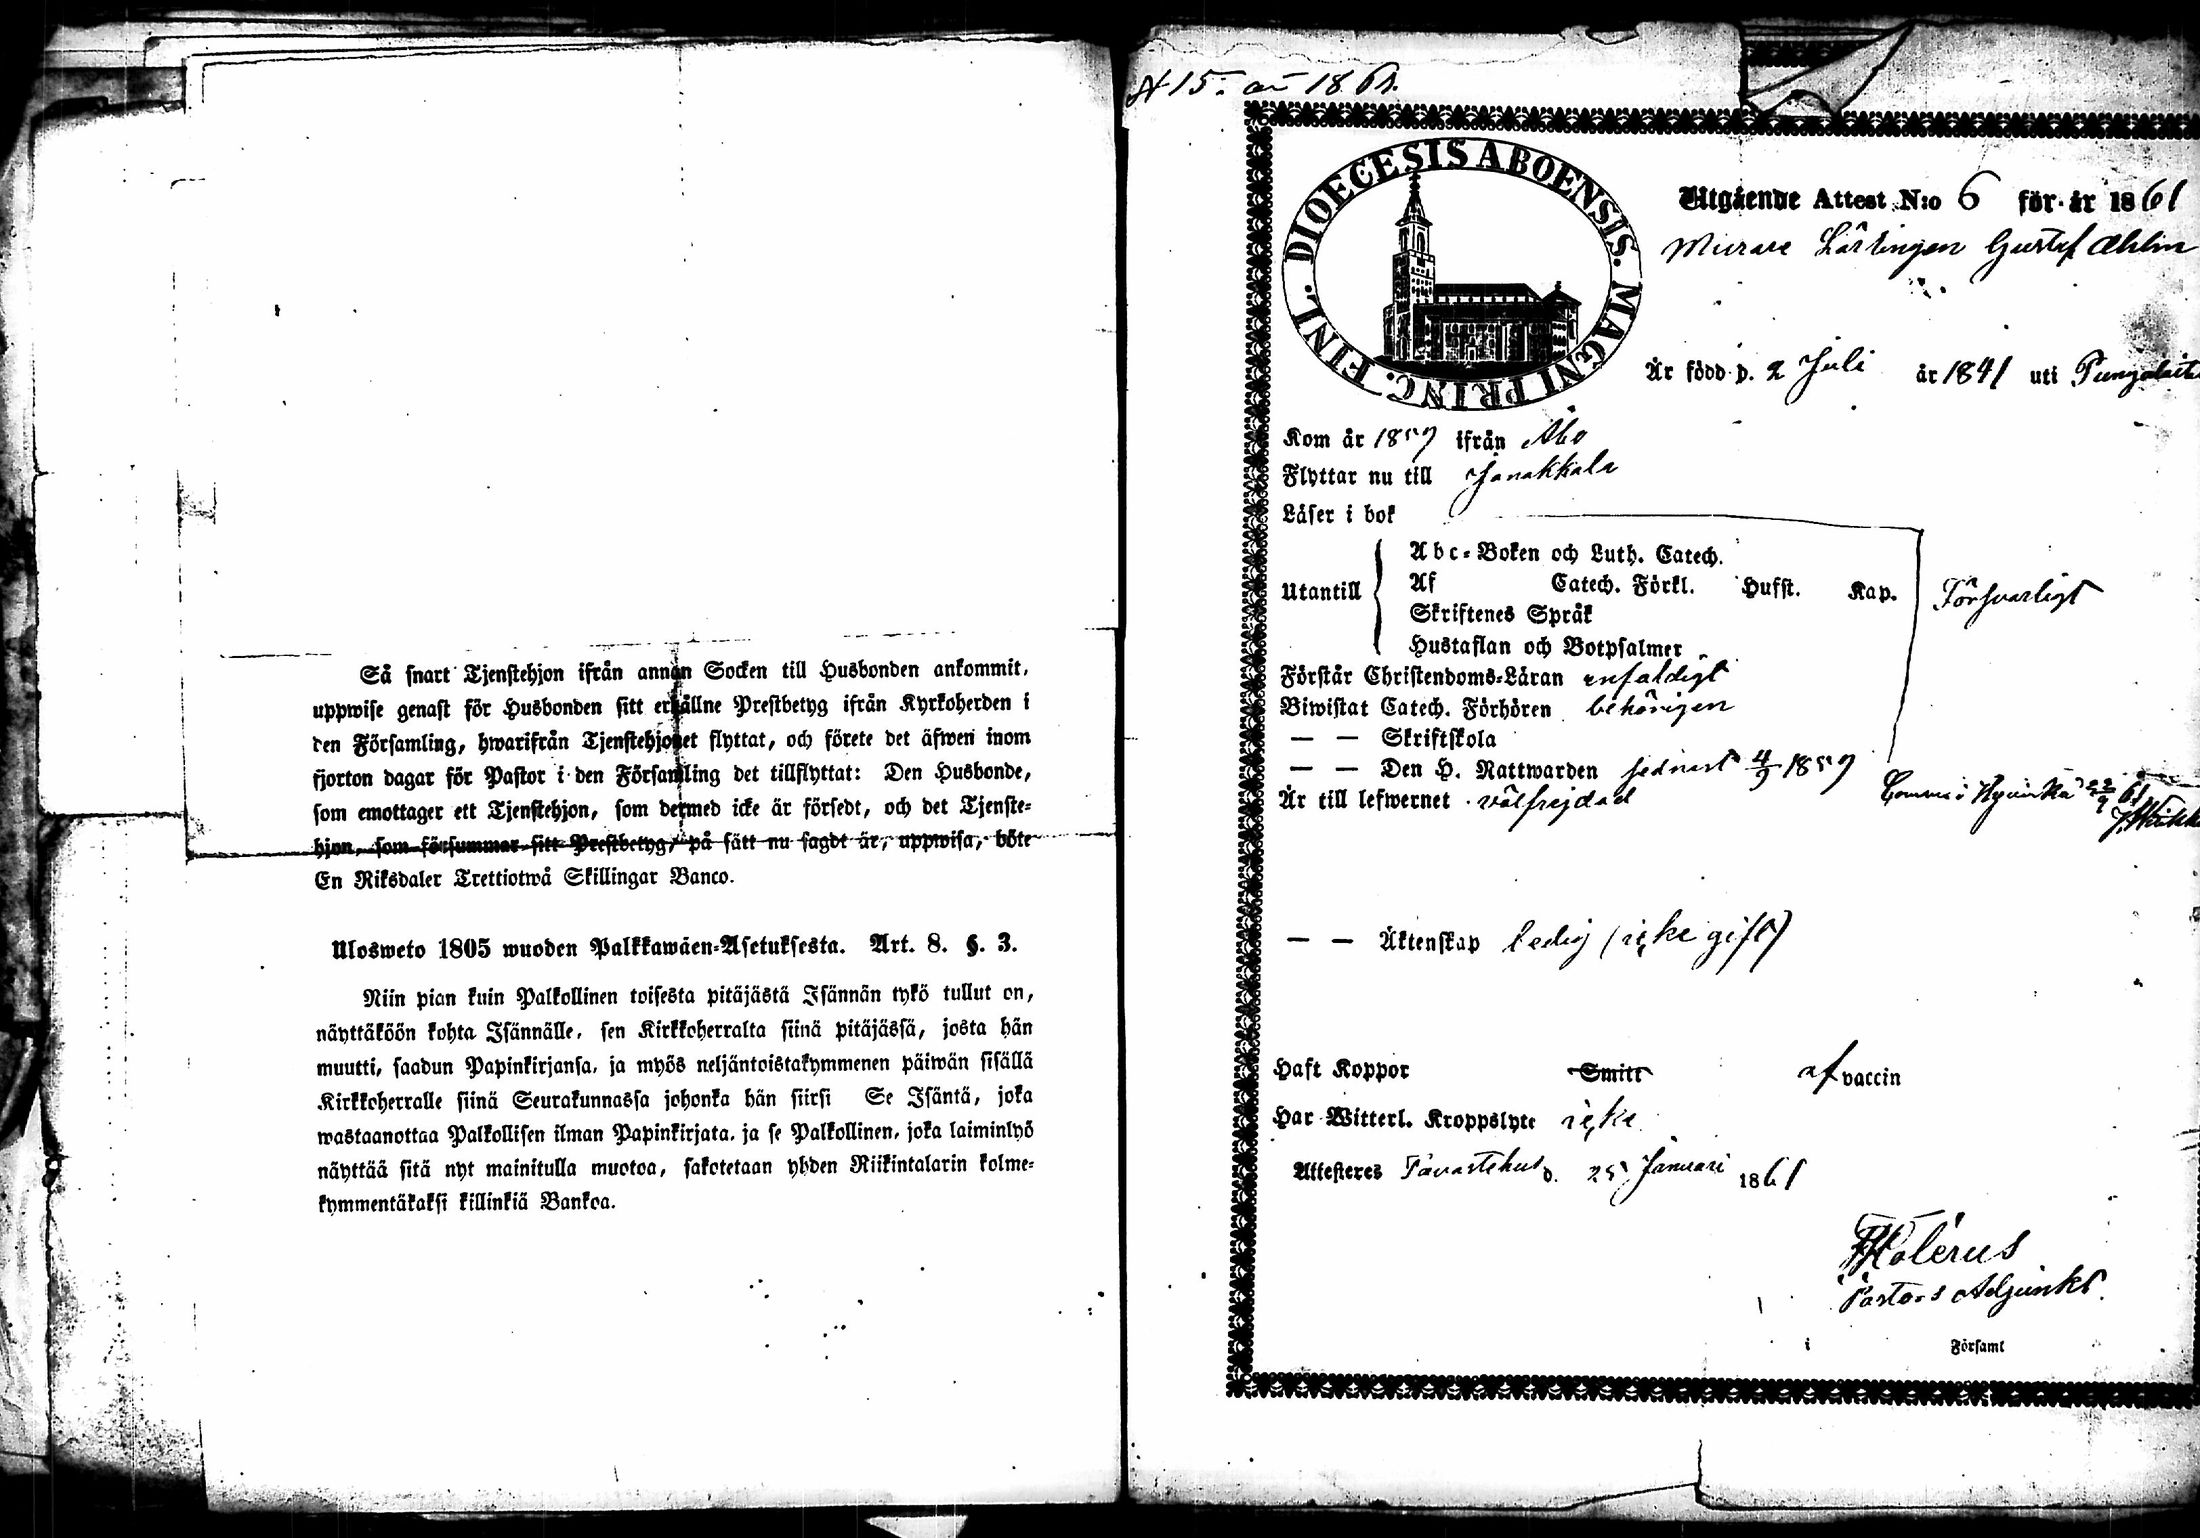 Så snart Tjenstehjon ifrån annan Socken till Husbonden ankommit,
uppwise genast för Husbonden sitt erhållne Prestbetyg ifrån Kyrkoherden i
den Församling, hwarifrån Tjenstehjonet flyttat, och förete det äfwen inom
fjorton dagar för Pastor i den Församling det tillflyttat: Den Husbonde,
som emottager ett Tjenstehjon, som dermed icke är försedt, och det Tjenste-
hjon, som försummar sitt Prestbetyg, på sätt nu sagdt är, uppwisa, böte
En Riksdaler Trettiotwå Skillingar Banco.
Ulosweto 1805 wuoden Palkkawäen-Asetuksesta. Art. 8. §. 3.
Niin pian kuin Palkollinen toisesta pitäjästä Isännän tykö tullut on,
näyttäköön kohta Isännälle, sen Kirkkoherralta siinä pitäjässä, josta hän
muutti, saadun Papinkirjansa, ja myös neljäntoistakymmenen päiwän sisällä
Kirkkoherralle siinä Seurakunnassa johonka hän siirsi Se Isäntä, joka
wastaanottaa Palkollisen ilman Papinkirjata, ja se Palkollinen, joka laiminlyö
näyttää sitä nyt mainitulla muotoa, sakotetaan yhden Riikintalarin kolme-
kymmentäkaksi killinkiä Bankoa.
N 15. 1861.
DIOECESIS ABOENSIS. MAGNI PRINC. FINL.
Utgående Attest N:o 6 för år 1861
Murare Lärlingen Gustaf Ahlin
Är född d. 2 Juli år 1841 uti
Kom år 1859 ifrån Åbo
Flyttar nu till Janakkala
Läser i bok
Abc-Boken och Luth. Catech.
Utantill Af Catech. Förkl. Hufst. Kap. Försvarligt
Skriftenes Språk
Hustaflan och Botpsalmer
Förstår Christendoms-Läran enfaldigt
Biwistat Catech. Förhören behörigen
— — Skriftskola
— — Den H. Nattwarden sednast 4/9 1859
Är till lefwernet välfrejdad
i Hyvinkä
— — Äktenskap ledig (icke gift)
Haft Koppor Smitt af vaccin
Har Witterl. Kroppslyte icke
Attesteres Tavastehus d. 25 Januari 1861
Pastors Adjunkt.
i Församl